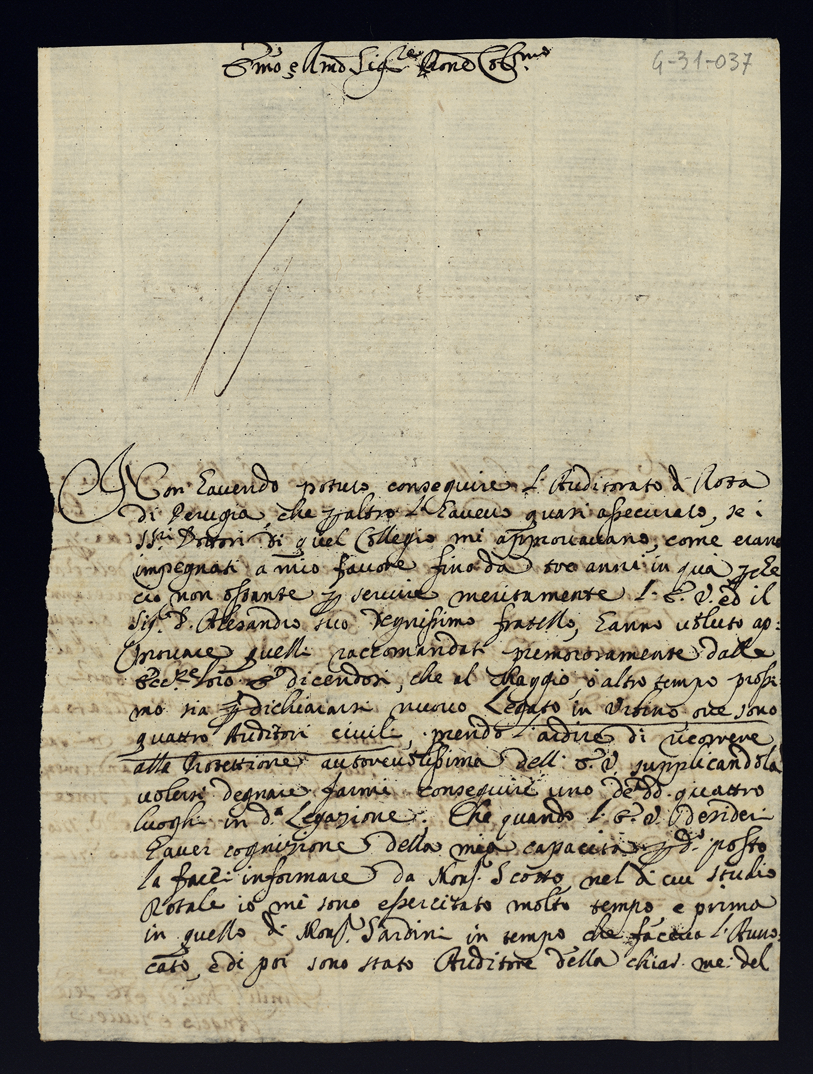 Emo e Rmo Sig.re Prone Col.mo
G-31-037
Non havendo potuto conseguire l'Auditorato di Rota
di Perugia, che p altro l'havevo quasi assecurato, se i
SS.ri Dottori di quel Collegio mi approvavano, come erano
impegnati a mio favore fino da tre anni in quà, p che
ciò non ostante p servire meritamente l'E. V. ed il
Sig. D. Alesandro suo degnissimo fratello, hanno voluto ap:
provare quelli raccomandati premorosamente dalle
, dicendosi, che al Maggio, o altro tempo prossi:
mo sia p dichiararsi nuovo Legato in Urbino ove sono
quattro Auditori civili, prendo l'ardire di ricorrere
alla Protettione autorevolissima dell' E. V. supplicandola
volersi degnare farmi conseguire uno de dd. quattro
luoghi in d.a Legazione. Che quando l'E. V. desideri
haver cognizione della mia capacità p d.o posto
la facci informare da Mons. Scotto, nel di cui studio
Rotale io mi sono essercitato molto tempo e prima
in quello di Mons. Sardini in tempo che faceva l'Auvo:
cato, e di poi sono stato Auditore della chiar. me: del